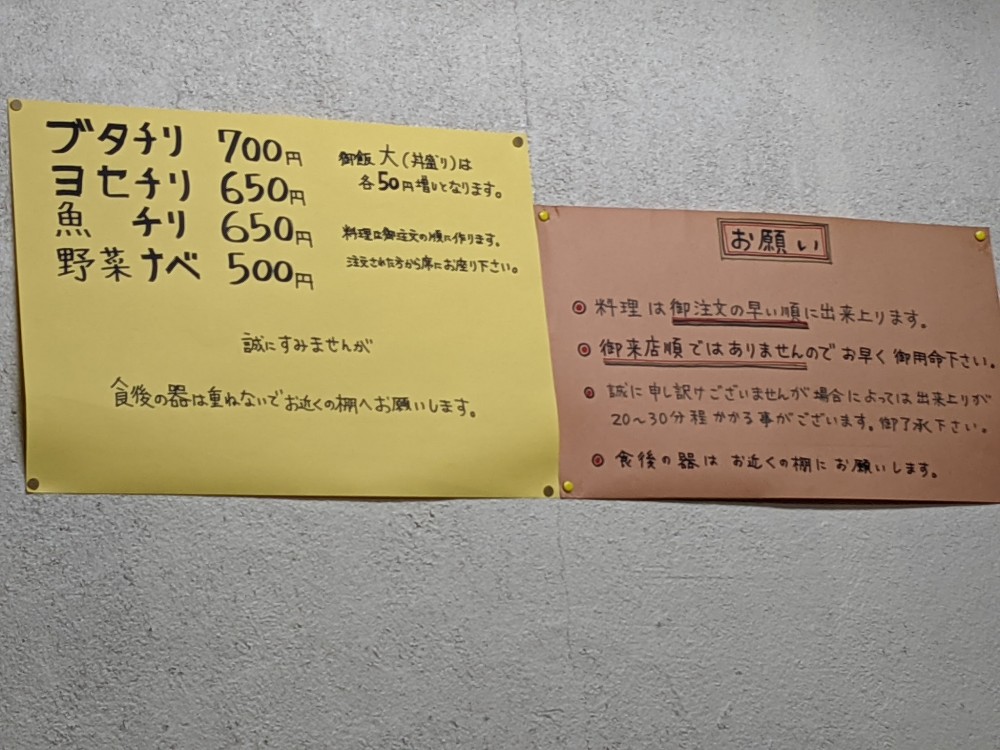 ブタチリ 700円
ヨセチリ 650円
魚 チリ 650円
野菜ナベ 500円
御飯 大(丼盛り)は
各50円増しとなります。
料理は御注文の順に作ります。
注文された方から席にお座り下さい。
誠にすみませんが
食後の器は重ねないでお近くの棚へお願いします。
お願い
料理は御注文の早い順に出来上ります。
御来店順ではありませんのでお早く御用命下さい。
誠に申し訳けございませんが場合によっては出来上りが
20〜30分程かかる事がございます。御了承下さい。
食後の器は お近くの棚にお願いします。